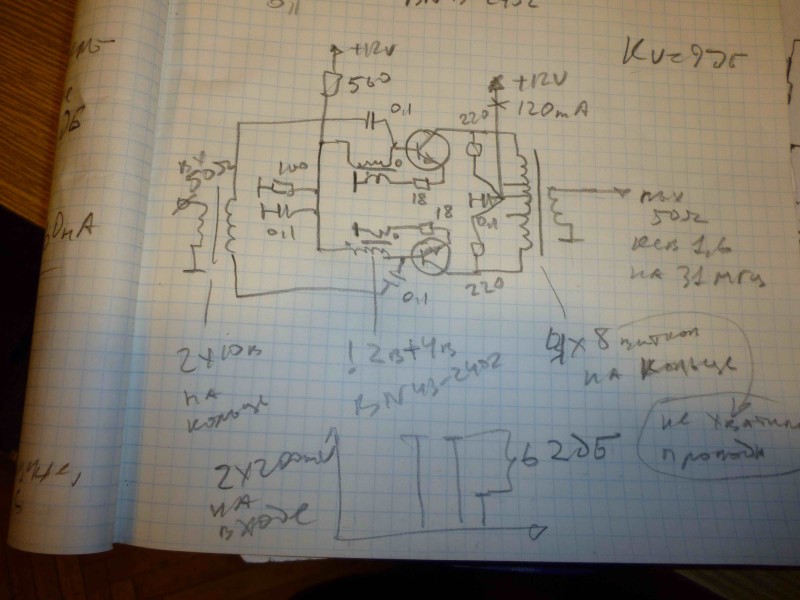 0,1
BN43-2402
Ku=9дБ
+12V
560
0,1
+12V
120mA
220
вх
50Ω
100
0,1
18
18
0,1
220
0,1
вых
50Ω
КСВ 1,6
на 31 мгц
2х10в
на
кольце
! 2в+4в
BN43-2402
4х8 витков
на кольце
не хватило
провода
2х200mV
на
входе
62дБ